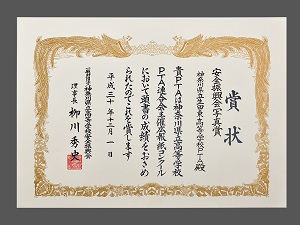 賞状
安全振興会写真賞
神奈川県立生田東高等学校PTA殿
貴PTAは神奈川県立高等学校
PTA連合会主催広報紙コンクール
において頭書の成績をおさめ
られたのでこれを賞します
平成三十年十一月一日
一般財団法人神奈川県立高等学校安全振興会
理事長 柳川秀史